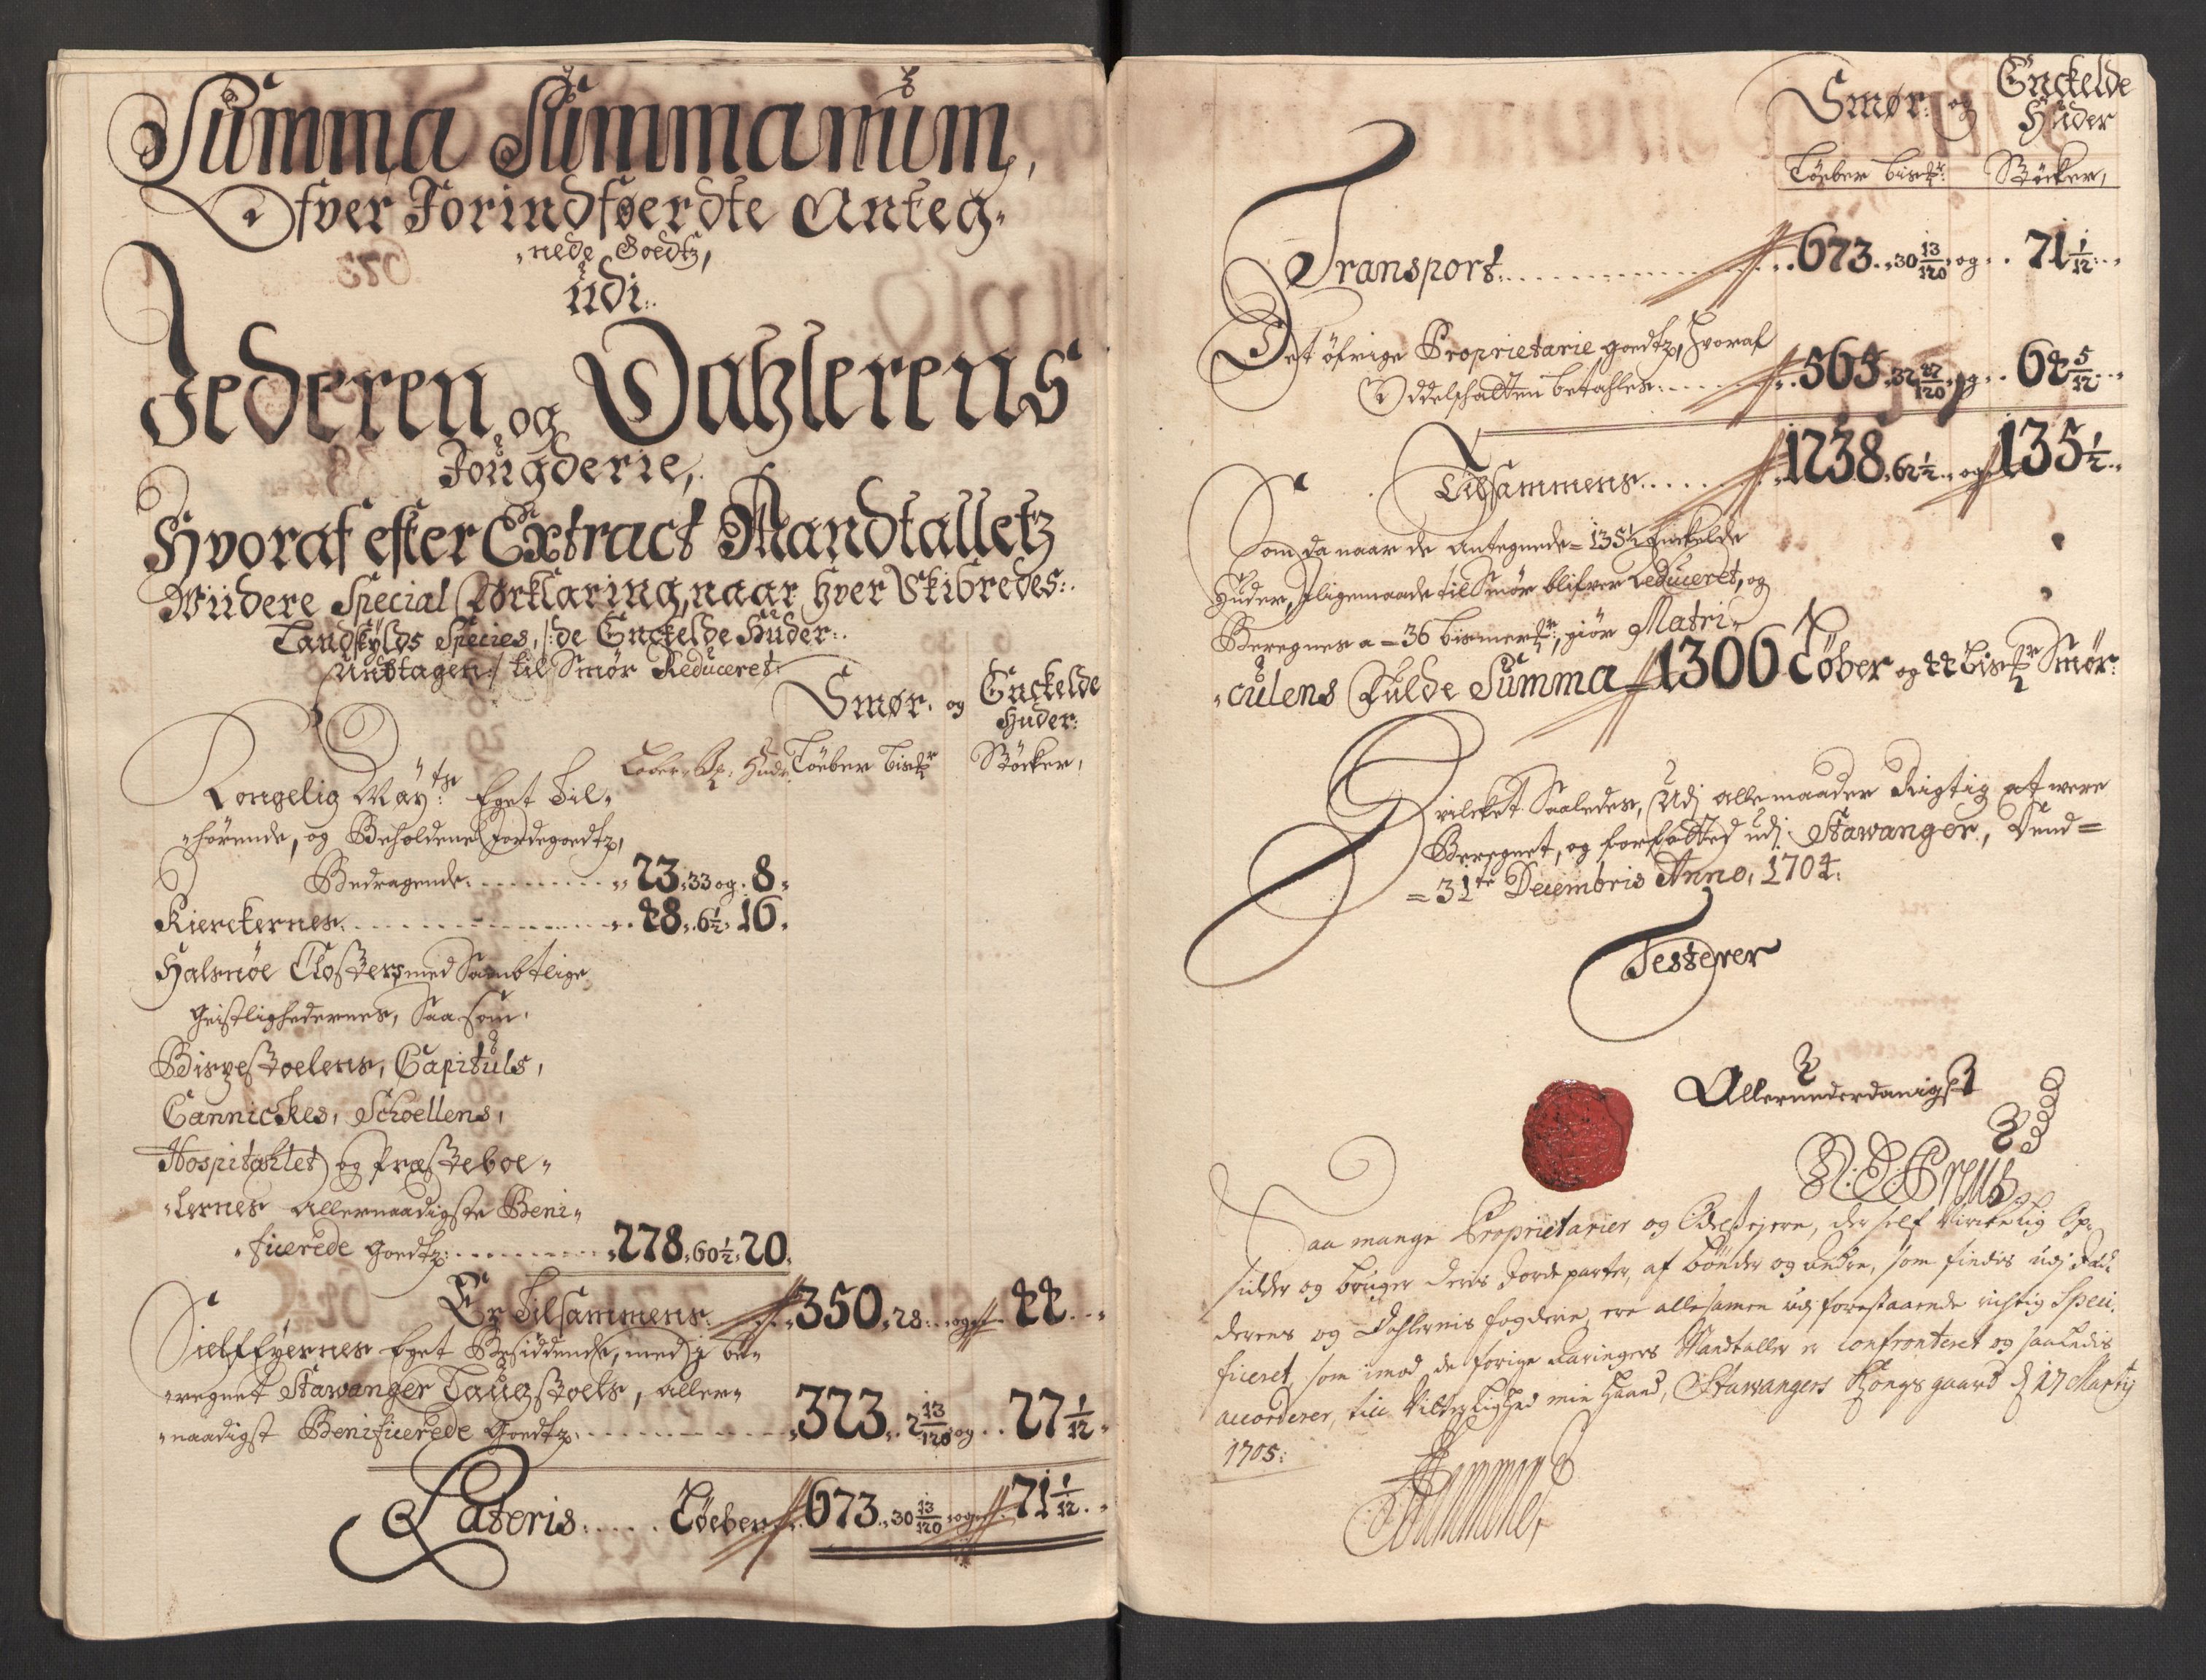 Summa Summarum,
Ofver Forindføerdte Anteg-
-nede Goedtz,
Udi:
Jederen og Dahlerens
Fougderie,
Hvoraf efter Extract Mandtalletz
Viidere Special Forklaring, naar hver Skibredes:
Landskylds Species, /: de Enckelde Huder:
Undtagen :/ til Smør Reduceret:
Smør. og Enckelde
Huder:
Løber. Huder Løeber Bis℔ Støcker,
Kongelig Mayts Eget Til-
-hørende, og Beholdene Jordegoedtz,
Bedragende. 23. 33 og. 8.
Kierckernes. 48. 6½. 16.
Halsnøe Closters med Sambtlige
Geistlighedernes, Saasom
Bispestoelens, Capituls,
Cannickes, Schoellens,
Hospitahlet og Præsteboe-
-lernes Allernaadigste Beni-
-ficerede Goedtz: 278. 60½. 20.
Er Tilsammens. 350. 28. og 44.
Sielfeyernes Eget Besiddende, med i be-
-regnet Stawanger Laugstoels, aller-
-naadigst Benificerede Goedtz. 323. 2 13/120 og 27 1/12
Lateris. Løeber 673. 30 13/120 og 71 1/12.
Smør. og Enckelde
Huder
Løeber Bis℔: Støcker,
Transport. 673. 30 13/120 og 71 1/12.
Det øfrige Proprietarie goedtz, Hvoraf
Oddelschatten betahles. 565. 32 47/120 og 64 5/12.
Tilsammens. 1238. 62½. og 135½.
Som da naar de Antegnede 135½ Enckelde
Huder, ligemaade til Smør blifver Reduceret, og
Beregnes a = 36 bismer℔, giør Matri-
-culens Fulde Summa 1306 Løber og 44 Bis℔ Smør:
Hvilcket Saaledes, Udj alle maader Rigtig at were
Beregnet, og forfatted udj Stawanger, Dend =
= 31te Decembris Anno, 1704.
Testerer
Allerunderdanigst
Saa mange Proprietarier og Odelsejere, der self Virckelig Op-
sidder og bruger deris Jordeparter, af bønder og andre, som findis udj Jæd-
derens og Dahlernis fogderie, ere allesamen udj forestaaende rigtig Speci-
ficeret, som imod de forige Aaringers Mandtaller er confronteret og saaledis
accorderer, till Vitterlighed min Haand, Stawangers Kongsgaard d 27 Martij
1705.